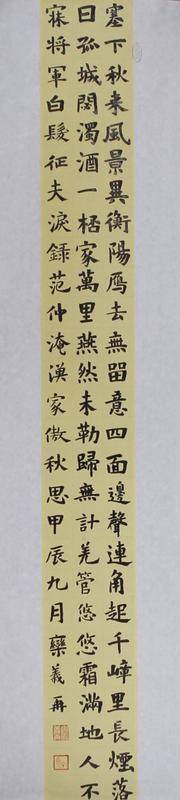 塞下秋来風景異衡陽鴈去無留意四面邊聲連角起千嶂里長煙落
日孤城閉濁酒一桮家萬里燕然未勒歸無計羌管悠悠霜滿地人不
寐將軍白髮征夫淚錄范仲淹漢家傲秋思甲辰九月欒義再